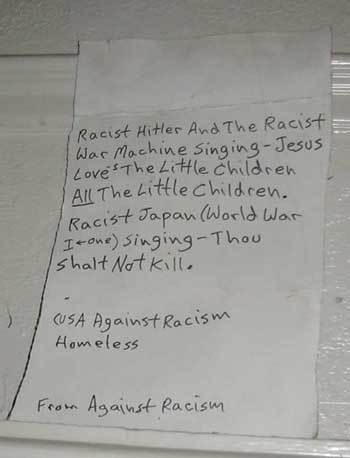 Racist Hitler And The Racist
War Machine Singing-Jesus
Love's The Little Children
All The Little Children.
Racist Japan (World War
I←one) Singing-Thou
Shalt Not Kill.
-
(USA Against Racism
Homeless
)
From Against Racism